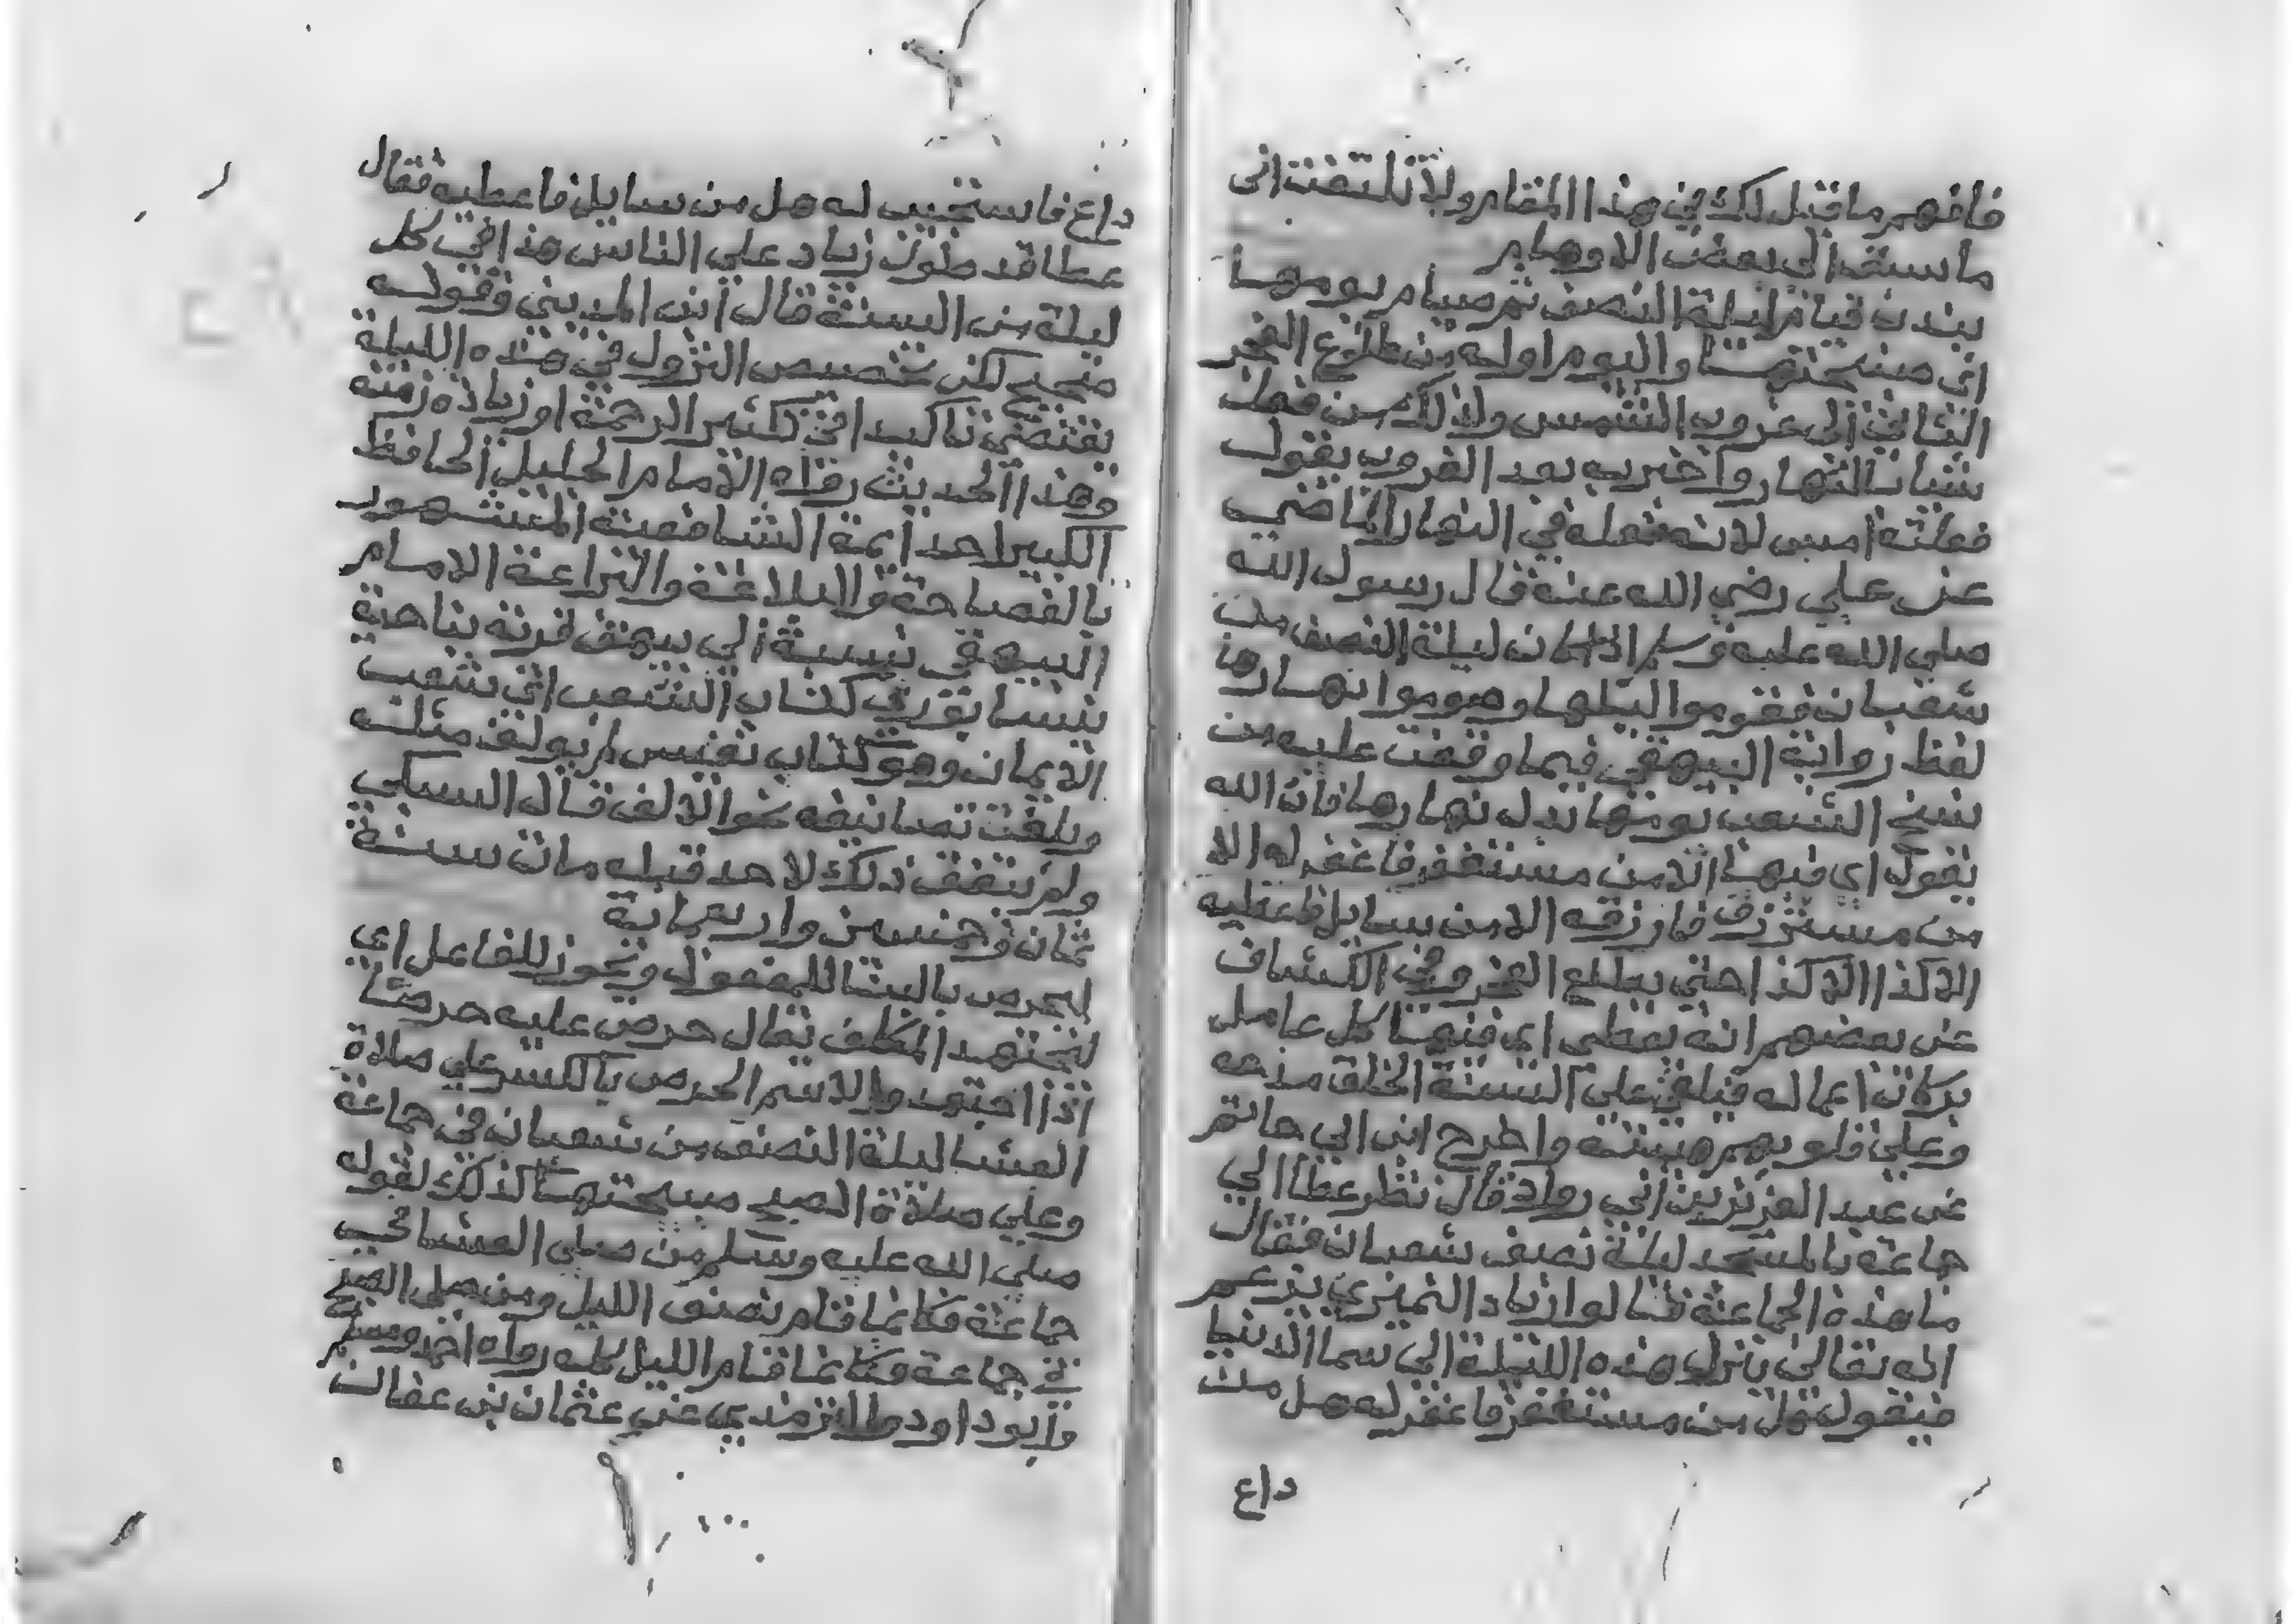 فافهم ما قيل لك في هذا المقام ولا تلتفت الى
ما سبق الى بعض الاوهام
يندب قيام ليلة النصف ثم صيام يومها
اي صبيحتها واليوم اوله من طلوع الفجر
الثاني الى غروب الشمس ولذلك من فعل
شيا بالنهار واخبر به بعد الغروب يقول
فعلته امس لانه فعله في النهار الماضي
عن علي رضي الله عنه قال رسول الله
صلي الله عليه وسلم اذا كان ليلة النصف من
شعبان فقوموا ليلها وصوموا نهارها
لفظ رواية البيهقي فيما وقفت عليه من
نسخ الشعب يومها بدل نهارها فان الله
يقول اي فيها الا من مستغفر فاغفر له الا
من مسترزق فارزقه الا من سايل فاعطيه
الا كذا الا كذا حتي يطلع الفجر وفي الكشاف
عن بعضهم انه يعطى اي فيها كل عامل
بركات اعماله فيلقى على السنة الخلق مدحه
وعلى قلوبهم هيبته واخرج ابن ابي حاتم
عن عبد العزيز بن ابي رواد قال نظر عطا الي
جماعة بالمسجد ليلة نصف شعبان فقال
ما هذه الجماعة فقالوا زياد النميري يزعم
ان الله تعالى ينزل هذه الليلة الى سما الدنيا
فيقول هل من مستغفر فاغفر له هل من
داع
داع فاستجيب له هل من سايل فاعطيه فقال
عطا قد طول زياد علي الناس هذا في كل
ليلة من السنة قال ابن المديني وقوله
متجه لكن تخصيص النزول في هذه الليلة
يقتضي تاكيدا في تكثير الرحمة او زيادة زمنه
وهذا الحديث رواه الامام الجليل الحافظ
الكبير احد ايمة الشافعية المشهور
بالفصاحة والبلاغة والبراعة الامام
البيهقي نسبة الي بيهق قرية بناحية
نيسابور في كتاب الشعب اي شعب
الايمان وهو كتاب نفيس لم يولف مثله
وبلغت تصانيفه نحو الالف قال السبكي
ولم يتفق ذلك لاحد قبله مات سنة
ثمان وخمسين واربعماية
ليحرص بالبنا للمفعول ويجوز للفاعل اي
ليجتهد المكلف يقال حرص عليه حرصا
اذا اجتهد والاسم الحرص بالكسر علي صلاة
العشا ليلة النصف من شعبان في جماعة
وعلي صلاة الصبح صبيحتها كذلك لقوله
صلي الله عليه وسلم من صلي العشا في
جماعة فكانما قام نصف الليل ومن صلي الصبح
في جماعة فكانما قام الليل كله رواه احمد ومسلم
وابو داود والترمذي عن عثمان بن عفان